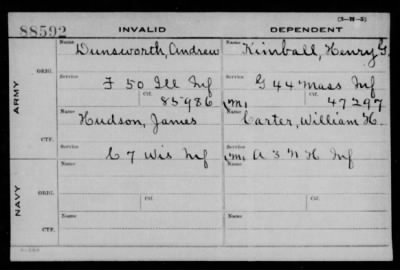 (3-H-5)
88592 INVALID DEPENDENT
ARMY
ORIG.
Name Dunsworth, Andrew
Name Kimball, Henry G.
Service F 50 Ill Inf
Ctf. 85986
Service G 44 Mass Inf
(M) Ctf. 47297
CTF.
Name Hudson, James
Name Carter, William H.
Service C 7 Wis Inf
Service (M) A 3 N H Inf
NAVY
ORIG.
Name
Name
Service
Ctf.
Service
Ctf.
CTF.
Name
Name